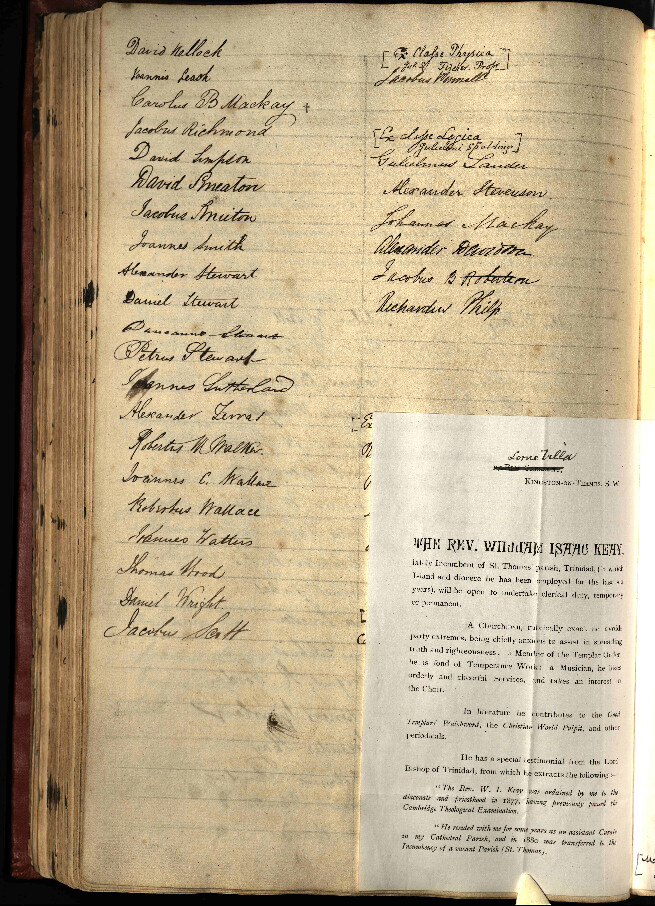 David Kellock
Joannes Leach
Carolus B Mackay +
Jacobus Richmond
David Simpson
David Smeaton
Jacobus Smeeton
Joannes Smith
Alexander Stewart
Daniel Stewart
Duncanus Stewart
Petrus Stewart
Joannes Sutherland
Alexander
Robertus W Walker
Joannes C. Wallace
Robertus Wallace
Joannes Watters
Thomas Wood
Daniel Wright
Jacobus Scott
[Ex Classe Physica
Prof.]
Jacobus
[Ex classe Logica
Gulielmi Spalding]
Gulielmus Lauder
Alexander Stevenson
Johannes Mackay
Alexander Davidson
Jacobus B Robertson
Richardus Philp
Lorne Villa
KINGSTON-ON-THAMES, S.W.
THE REV. WILLIAM ISAAC KEAY,
lately Incumbent of St. Thomas parish, Trinidad, (in which
Island and diocese he has been employed for the last
years), will be open to undertake clerical duty, temporary
or permanent.
A Churchman, naturally avoid
party extremes, being chiefly anxious to assist in spreading
truth and righteousness. A Member of the Templar Order
he is fond of Temperance Work: a Musician, he likes
orderly and cheerful services, and takes an interest in
the Choir.
In literature he contributes to the Good
Templars' Watchword, the Christian World Pulpit, and other
periodicals.
He has a special testimonial from the Lord
Bishop of Trinidad, from which he extracts the following:—
"The Rev. W. I. Keay was ordained by me to the
diaconate and priesthood in 1877, having previously passed the
Cambridge Theological Examination.
"He resided with me for some years as an assistant Curate
in my Cathedral Parish, and in 1880 was transferred to the
Incumbency of a vacant Parish (St. Thomas).